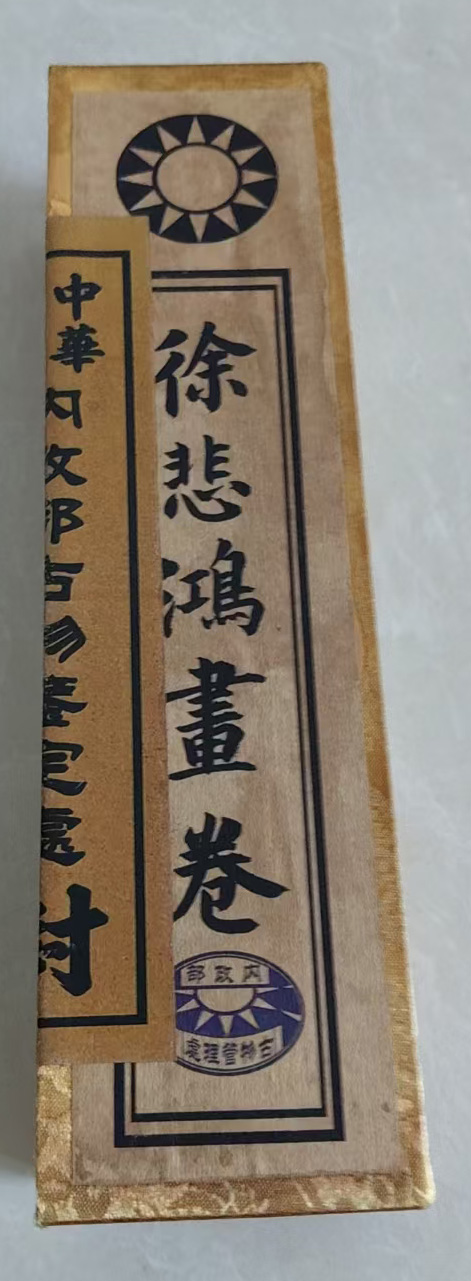 徐悲鴻畫卷
中華内政部古物鑒定處封
部政内
處理管物古